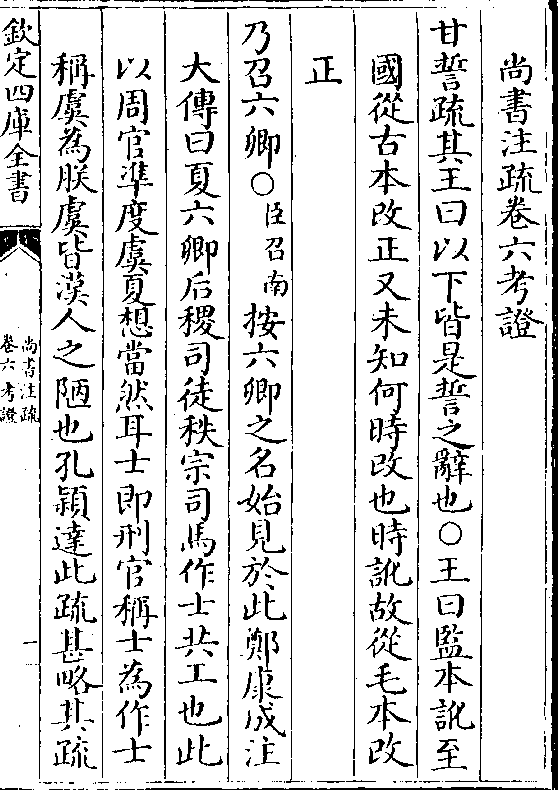 尚書注疏卷六考證
甘誓疏其王曰以下皆是誓之辭也○王曰監本訛至
國從古本改正又未知何時改也時訛故從毛本改
正
乃召六卿○臣召南按六卿之名始見於此鄭康成注
大傳曰夏六卿后稷司徒秩宗司馬作士共工也此
以周官準度虞夏想當然耳士即刑官稱士為作士
稱虞為朕虞皆漢人之陋也孔穎達此疏甚略其疏
欽定四庫全書
尚書注疏
卷六考證
一